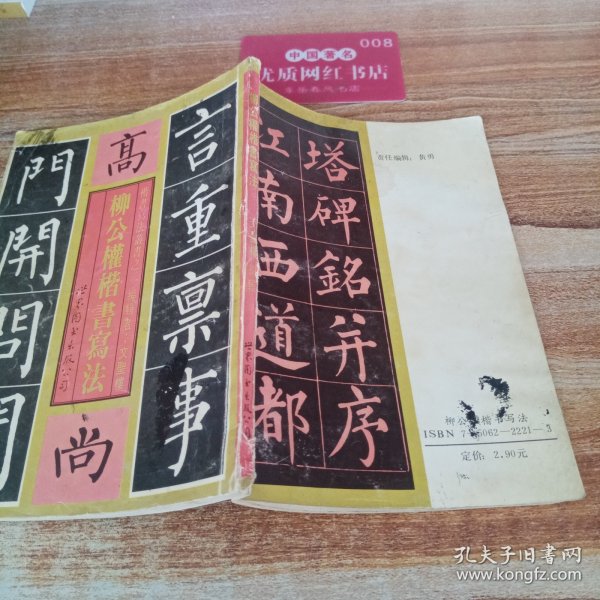 008
中国著名
优质网红书店
言重禀事
高
尚
門開問門
柳公權楷書寫法
世界图书出版公司
塔碑銘并序
江南西道都
责任编辑：黄勇
柳公权楷书写法
ISBN 7-5062-2221-3
定价：2.90元
孔夫子旧书网
www.kongfz.com